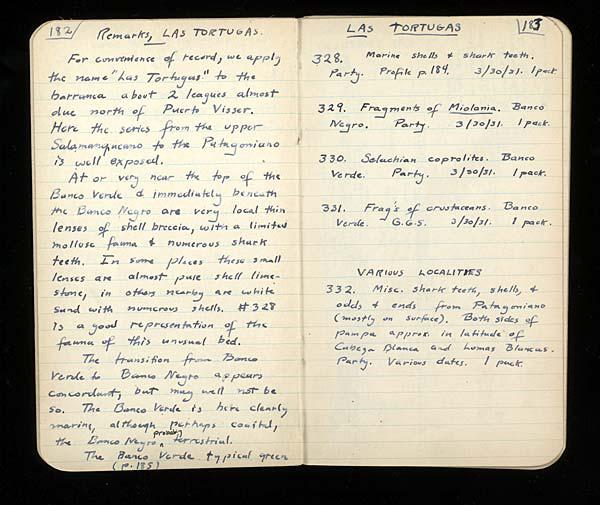 182
Remarks, LAS TORTUGAS.
For convenience of record, we apply
the name "Las Tortugas" to the
barranca about 2 leagues almost
due north of Puerto Visser.
Here the series from the upper
Salamanqueano to the Patagoniano
is well exposed.
At or very near the top of the
Banco Verde & immediately beneath
the Banco Negro are very local thin
lenses of shell breccia, with a limited
mollusc fauna & numerous shark
teeth. In some places these small
lenses are almost pure shell lime-
stone, in others nearby are white
sand with numerous shells. #328
is a good representation of the
fauna of this unusual bed.
The transition from Banco
Verde to Banco Negro appears
concordant, but may well not be
so. The Banco Verde is here clearly
marine, although perhaps
the Banco Negro probably terrestrial.
The Banco Verde typical green
(p. 185)
LAS TORTUGAS
183
328. Marine shells & shark teeth.
Party. Profile p. 184. 3/30/31. 1 pack
329. Fragments of Miolania. Banco
Negro. Party. 3/30/31. 1 pack.
330. Selachian coprolites. Banco
Verde. Party. 3/30/31. 1 pack.
331. Frag's of crustaceans. Banco
Verde. G.G.S. 3/30/31. 1 pack.
VARIOUS LOCALITIES
332. Misc. shark teeth, shells, &
odds & ends from Patagoniano
(mostly on surface). Both sides of
pampa approx. in latitude of
Cabeza Blanca and Lomas Blancas.
Party. Various dates. 1 pack.